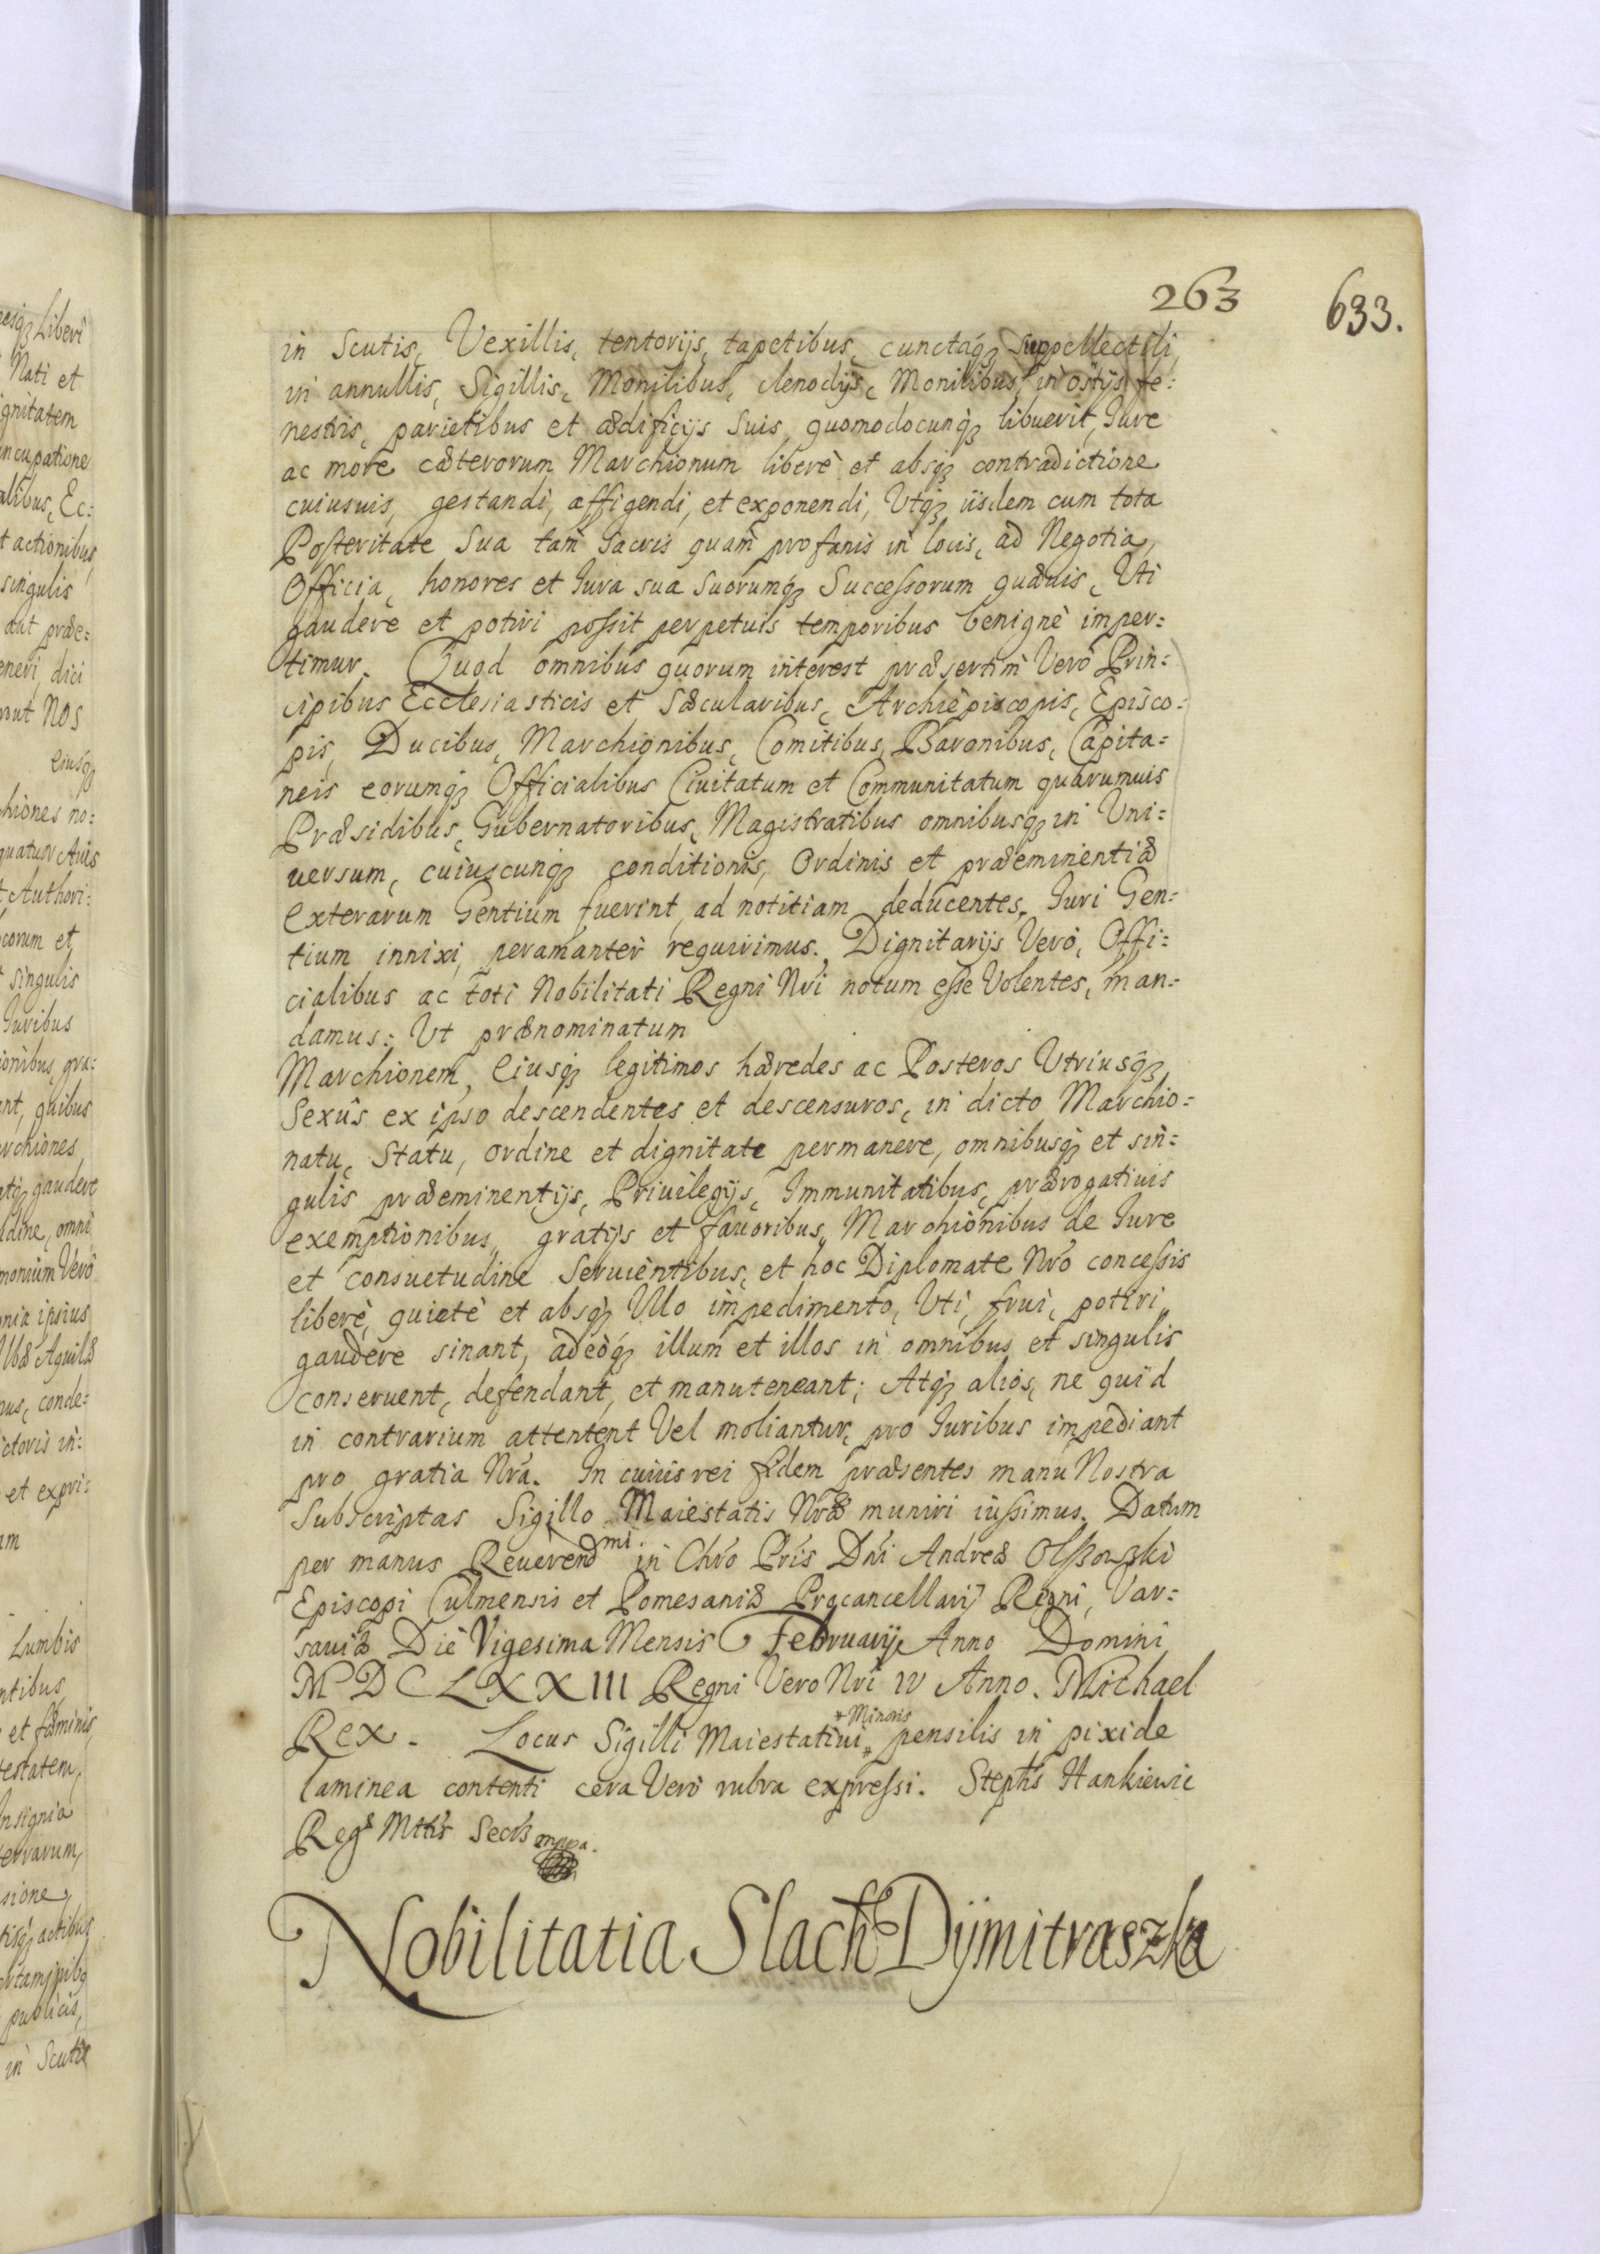 263
633.
in Scutis, Vexillis, tentorijs, tapetibus, cunctaq3 Suppellectili
in annullis, Sigillis, Monilibus, clenodijs, Monilibus, in ostijs fe:
nestris, parietibus et ædificijs Suis, quomodocunq3 libuerit, Jure
ac more cæterorum Marchionum liberè et absq3 contradictione
cuiusuis, gestandi, affigendi, et exponendi, Utq3 iisdem cum tota
Posteritate Sua tam Sacris quam profanis in locis, ad Negotia,
Officia, honores et Jura sua Suorumq3 Successorum quæuis, Uti
gaudere et potiri possit perpetuis temporibus benignè imper:
timur. Quod omnibus quorum interest præsertim Vero Prin:
cipibus Ecclesiasticis et Sæcularibus, Archiepiscopis, Episco:
pis, Ducibus, Marchionibus, Comitibus, Baronibus, Capita:
neis eorumq3 Officialibus Ciuitatum et Communitatum quarumuis
Præsidibus, Gubernatoribus, Magistratibus omnibusq3 in Uni:
uersum, cuiuscunq3 conditionis, Ordinis et præeminentiæ
exterarum Gentium fuerint, ad notitiam deducentes, Juri Gen:
tium innixi, peramanter requirimus. Dignitarijs Vero, Offi:
cialibus ac toti Nobilitati Regni Nri notum esse Volentes, man:
damus: Ut prænominatum
Marchionem, Eiusq3 legitimos hæredes ac Posteros Utriusq3
Sexûs ex ipso descendentes et descensuros, in dicto Marchio:
natu, Statu, ordine et dignitate permanere, omnibusq3 et sin:
gulis præeminentijs, Priuilegijs, Immunitatibus, prærogatiuis
exemptionibus, gratijs et fauoribus, Marchionibus de Jure
et consuetudine Seruientibus, et hoc Diplomate Nro concessis
liberè, quietè et absq3 Ullo impedimento, Uti, frui, potiri,
gaudere sinant, adeoq3 illum et illos in omnibus et singulis
conseruent, defendant, et manuteneant; Atq3 alios, ne quid
in contrarium attentent Vel moliantur, pro Juribus impediant
pro gratia Nra. In cuius rei fidem præsentes manu Nostra
Subscriptas Sigillo Maiestatis Nræ muniri iussimus. Datum
per manus Reuerendmi in Chro Pris Dni Andreæ Olszowski
Episcopi Culmensis et Pomesaniæ Procancellarij Regni, Var:
sauiæ Die Vigesima Mensis Februarij Anno Domini
MDCLXXIII Regni Vero Nri IV Anno. Michael
Rex. Locus Sigilli Maiestatiui * pensilis in pixide
* Minoris
laminea contenti cera Vero rubra expressi. Stephs Hankiewic
Regæ Mttis Secrs mppa.
Nobilitatia Slachtæ Dijmitraszka